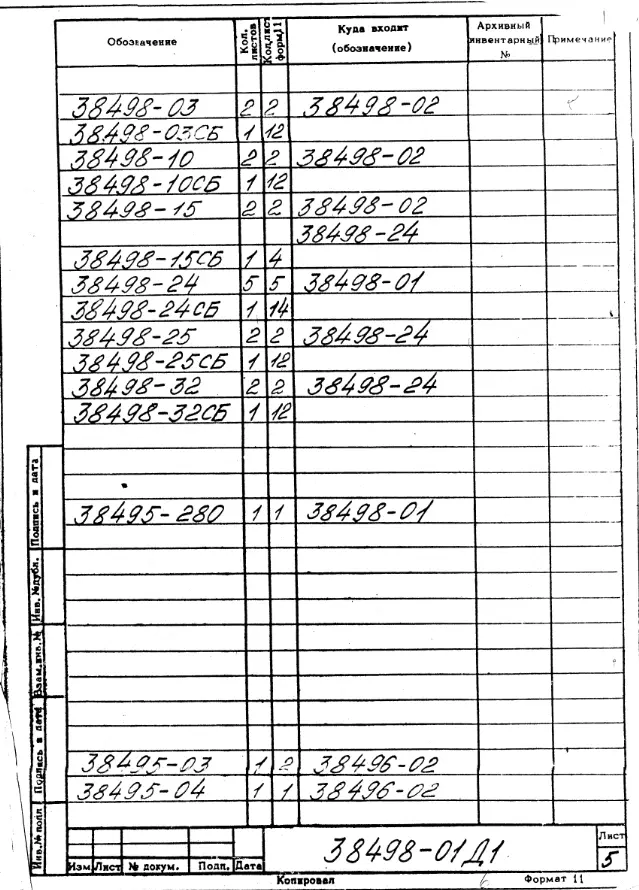 Обозначение Кол. листов Кол.лист форм.11 Куда входит (обозначение) Архивный инвентарный № Примечание
38498-03 2 2 38498-02
38498-03СБ 1 12
38498-10 2 2 38498-02
38498-10СБ 1 12
38498-15 2 2 38498-02
38498-24
38498-15СБ 1 4
38498-24 5 5 38498-01
38498-24СБ 1 14
38498-25 2 2 38498-24
38498-25СБ 1 12
38498-32 2 2 38498-24
38498-32СБ 1 12
38495-280 1 1 38498-01
38495-03 1 2 38496-02
38495-04 1 1 38496-02
Подпись и дата
Инв. №дубл.
Взам.инв.№
Подпись и дата
Инв.№ подл
Изм Лист № докум. Подп. Дата
38498-01Д1
Лист
5
Копировал Формат 11